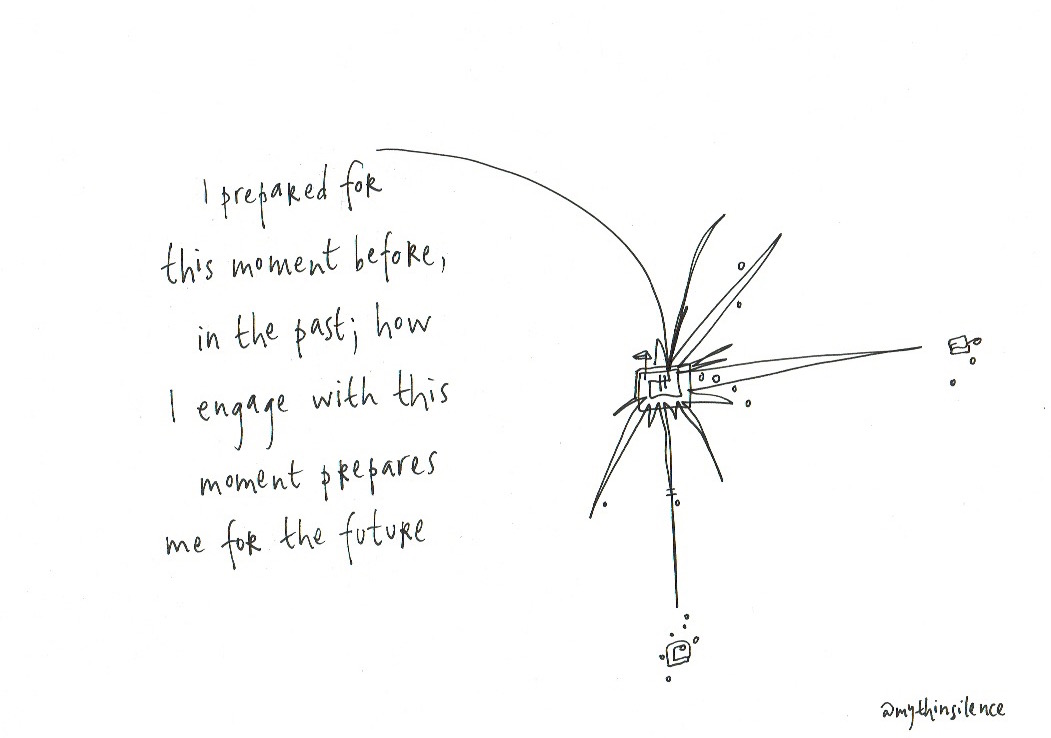 I prepared for
this moment before,
in the past; how
I engage with this
moment prepares
me for the future
@mythinsilence